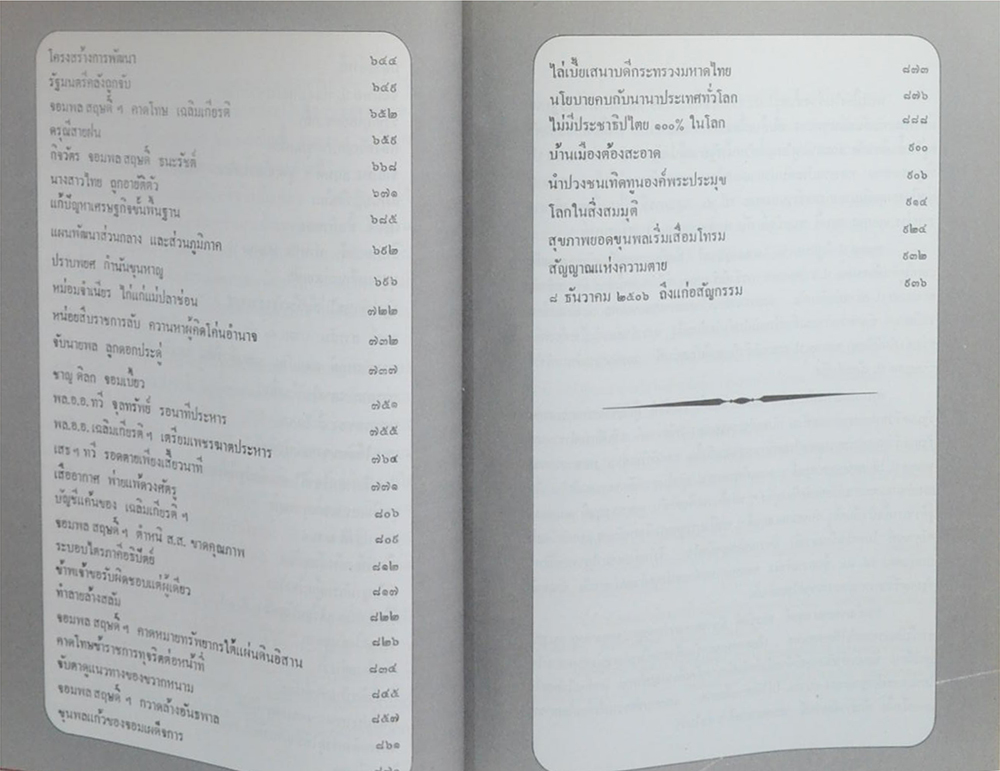 โครงสร้างการพัฒนา ๖๔๔
รัฐมนตรีคลังถูกจับ ๖๔๙
จอมพล สฤษดิ์ ฯ คาดโทษ เฉลิมเกียรติ ๖๕๒
ดรุณีสายฝน ๖๕๙
กิจวัตร จอมพล สฤษดิ์ ธนะรัชต์ ๖๖๘
นางสาวไทย ถูกอายัดตัว ๖๗๑
แก้ปัญหาเศรษฐกิจขั้นพื้นฐาน ๖๘๕
แผนพัฒนาส่วนกลาง และส่วนภูมิภาค ๖๙๒
ปราบพอศ กำนันขุนหาญ ๖๙๖
หม่อมจำเนียร ไก่แก่แม่ปลาช่อน ๗๒๒
หน่อยสืบราชการลับ ควานหาผู้คิดโค่นอำนาจ ๗๓๒
จับนายพล ลูกดอกประดู่ ๗๓๗
ชาญ ศิลก จอมเบี้ยว ๗๕๑
พล.อ.อ. ทวี จุลทรัพย์ รอนาทีประหาร ๗๕๕
พล.อ.อ. เฉลิมเกียรติ ฯ เตรียมเพชรฆาตประหาร ๗๖๔
เสธ ฯ ทวี รอดตายเพียงเสี้ยวนาที ๗๗๑
เสืออากาศ พ่ายแพ้ดวงศัตรู ๘๐๖
บัญชีแค้นของ เฉลิมเกียรติ ฯ ๘๐๙
จอมพล สฤษดิ์ ฯ ตำหนิ ส.ส. ขาดคุณภาพ ๘๑๒
ระบอบไตรภาคีอธิปัตย์ ๘๑๗
ข้าพเจ้าขอรับผิดชอบแต่ผู้เดียว ๘๒๒
ทำลายล้างสลัม ๘๒๖
จอมพล สฤษดิ์ ฯ คาดหมายทรัพยากรใต้แผ่นดินอิสาน ๘๓๔
คาดโทษข้าราชการทุจริตต่อหน้าที่ ๘๔๕
จับตาดูแนวทางของขวากหนาม ๘๕๗
จอมพล สฤษดิ์ ฯ กวาดล้างอันธพาล ๘๖๑
ขุนพลแก้วของจอมเผด็จการ
ไล่เบี้ยเสนาบดีกระทรวงมหาดไทย ๘๗๓
นโยบายคบกับนานาประเทศทั่วโลก ๘๗๖
ไม่มีประชาธิปไตย ๑๐๐% ในโลก ๘๘๘
บ้านเมืองต้องสะอาด ๙๐๐
นำปวงชนเทิดทูนองค์พระประมุข ๙๐๖
โลกในสิ่งสมมุติ ๙๑๔
สุขภาพยอดขุนพลเริ่มเสื่อมโทรม ๙๒๔
สัญญาณแห่งความตาย ๙๓๒
๘ ธันวาคม ๒๕๐๖ ถึงแก่อสัญกรรม ๙๓๖